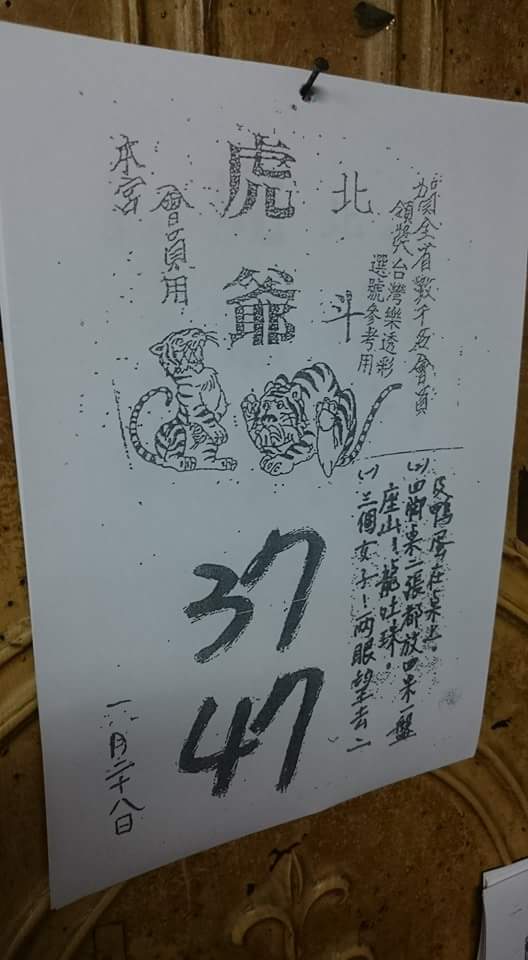 賀全省數千名會員
領獎台灣樂透彩
選號參考用
北斗
虎爺
會員用
本宮
(1)三個女子！兩眼望去二
座山！龍吐珠。
(2)四腳桌二張都放四果一盤
及鴨蛋在桌上。
37
47
月二十八日